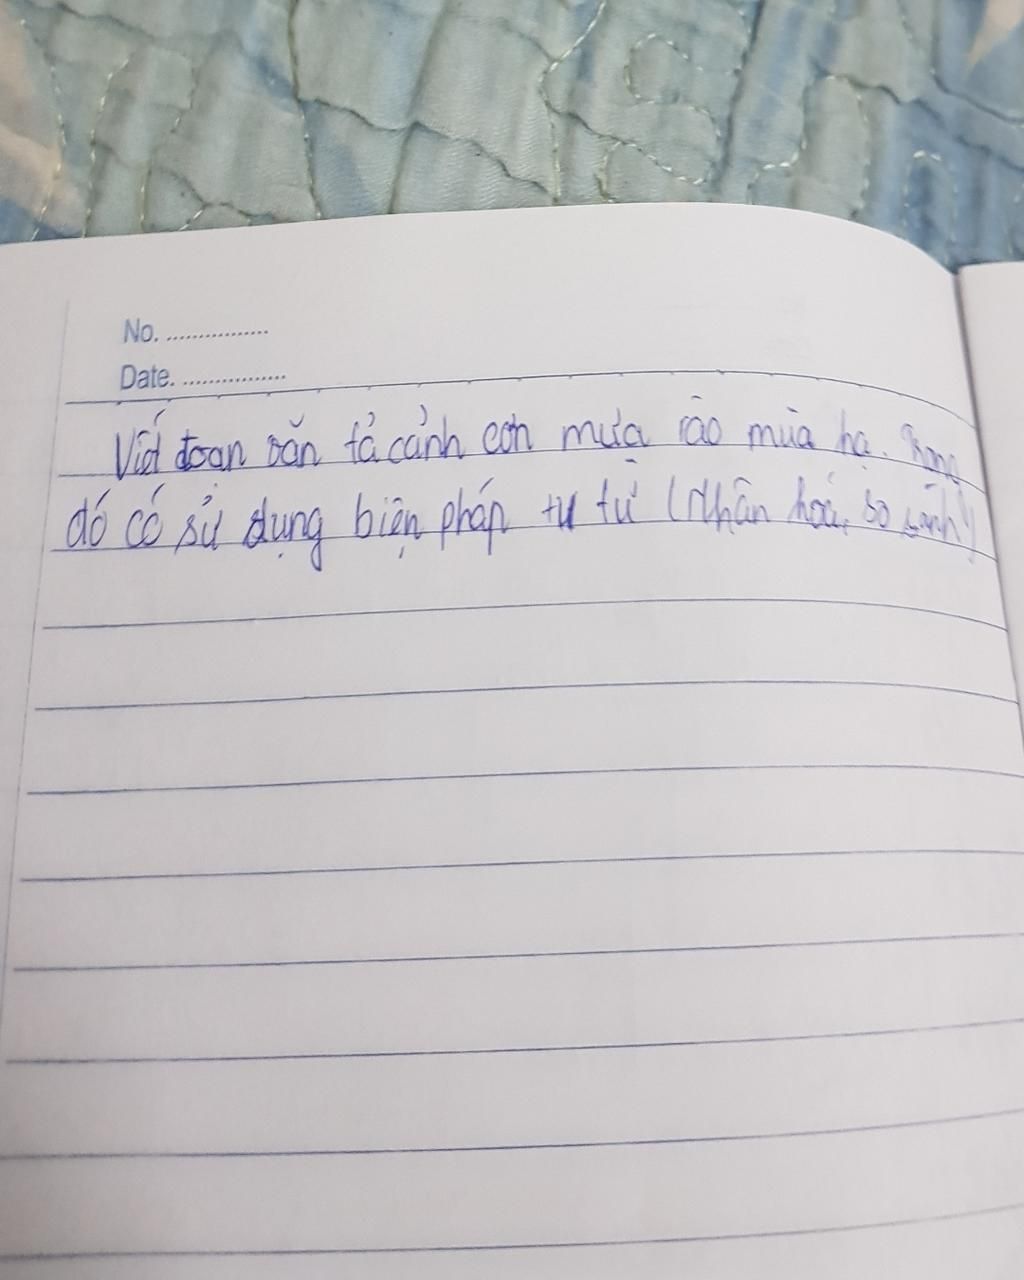 No. ................
Date. ................
Viết đoạn văn tả cảnh cơn mưa rào mùa hạ. Trong
đó có sử dụng biện pháp tu từ (Nhân hoá, so sánh)